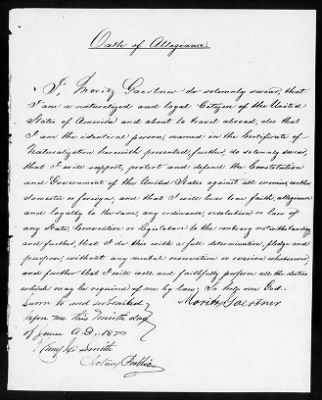 Oath of Allegiance.
I, Moritz Gaertner do solemnly swear, that
I am a naturalized and loyal Citizen of the United
States of America and about to travel abroad, also that
I am the identical person, named in the Certificate of
Naturalization herewith presented, further, do solemnly swear,
that I will support, protect and defend the Constitution
and Government of the United States against all enemies, whether
domestic or foreign, and that I will bear true faith, allegiance
and loyalty to the same, any ordinance, resolution or law of
any State, Convention or Legislature to the contrary notwithstanding
and further, that I do this with a full determination, pledge and
purpose, without any mental reservation or evasion whatsoever;
and further that I will well and faithfully perform all the duties
which may be required of me by law; So help me God.
Sworn to and subscribed
Moritz Gaertner
before me this Ninth day
of June A.D. 1870
Smith
Notary Public